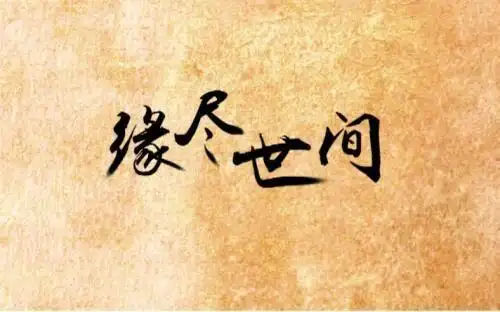 缘尽世间